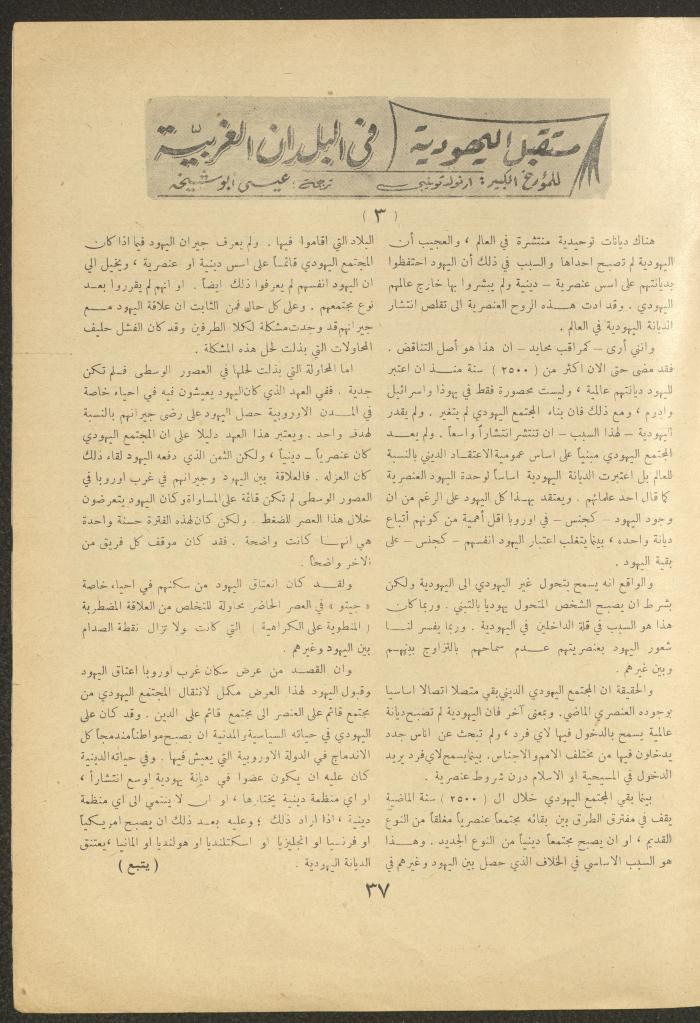 مستقبل اليهودية في البلدان الغربية
للمؤرخ الكبير: ارنولد توينبي
ترجمة: عيسى ابو شيخة
( ٣ )
هناك ديانات توحيدية منتشرة في العالم ، والعجيب أن
اليهودية لم تصبح احداها والسبب في ذلك أن اليهود احتفظوا
بديانتهم على اسس عنصرية – دينية ولم يبشروا بها خارج عالمهم
اليهودي . وقد ادت هذه الروح العنصرية الى تقلص انتشار
الديانة اليهودية في العالم .
وانني أرى – كمراقب محايد – ان هذا هو أصل التناقض .
فقد مضى حتى الان اكثر من ( ٢٥٠٠ ) سنة منذ ان اعتبر
اليهود ديانتهم عالمية ، وليست محصورة فقط في يهوذا واسرائيل
وادرم ، ومع ذلك فان بناء المجتمع اليهودي لم يتغير . ولم يقدر
اليهودية – لهذا السبب – ان تنتشر انتشاراً واسعاً . ولم يعد
المجتمع اليهودي مبنياً على اساس عمومية الاعتقاد الديني بالنسبة
للعالم بل اعتبرت الديانة اليهودية اساساً لوحدة اليهود العنصرية
كما قال احد علمائهم . ويعتقد بهذا كل اليهود على الرغم من ان
وجود اليهود – كجنس – في اوروبا اقل أهمية من كونهم أتباع
ديانة واحده ، بينما يتغلب اعتبار اليهود انفسهم – كجنس – على
بقية اليهود .
والواقع انه يسمح بتحول غير اليهودي الى اليهودية ولكن
بشرط ان يصبح الشخص المتحول يهوديا بالتبني . وربما كان
هذا هو السبب في قلة الداخلين في اليهودية . وربما يفسر لنا
شعور اليهود بعنصريتهم عدم سماحهم بالتزاوج بينهم
وبين غيرهم .
والحقيقة ان المجتمع اليهودي الديني بقي متصلا اتصالا اساسيا
بوجوده العنصري الماضي . وبمعنى آخر فان اليهودية لم تصبح ديانة
عالمية يسمح بالدخول فيها لاي فرد ، ولم تبحث عن اناس جدد
يدخلون فيها من مختلف الامم والاجناس . بينما يسمح لاي فرد يريد
الدخول في المسيحية او الاسلام درن شروط عنصرية .
بينما بقي المجتمع اليهودي خلال ال ( ٢٥٠٠ ) سنة الماضية
يقف في مفترق الطرق بين بقائه مجتمعاً عنصرياً مغلقاً من النوع
القديم ، او ان يصبح مجتمعاً دينياً من النوع الجديد . وهذا
هو السبب الاساسي في الخلاف الذي حصل بين اليهود وغيرهم في
البلاد التي اقاموا فيها . ولم يعرف جيران اليهود فيما اذا كان
المجتمع اليهودي قائماً على اسس دينية او عنصرية ، ويخيل الي
ان اليهود انفسهم لم يعرفوا ذلك ايضاً . او انهم لم يقرروا بعد
نوع مجتمعهم . وعلى كل حال فمن الثابت ان علاقة اليهود مع
جيرانهم قد وجدت مشكلة لكلا الطرفين وقد كان الفشل حليف
المحاولات التي بذلت لحل هذه المشكلة .
اما المحاولة التي بذلت لحلها في العصور الوسطى فلم تكن
جدية . ففي العهد الذي كان اليهود يعيشون فيه في احياء خاصة
في المدن الاوروبية حصل اليهود على رضى جيرانهم بالنسبة
لهدف واحد . ويعتبر هذا العهد دليلا على ان المجتمع اليهودي
كان عنصرياً – دينياً ، ولكن الثمن الذي دفعه اليهود لقاء ذلك
كان العزله . فالعلاقة بين اليهود وجيرانهم في غرب اوروبا في
العصور الوسطى لم تكن قائمة على المساواة وكان اليهود يتعرضون
خلال هذا العصر للضغط . ولكن كان لهذه الفترة حسنة واحدة
هي انها كانت واضحة . فقد كان موقف كل فريق من
الآخر واضحاً .
ولقد كان انعتاق اليهود من سكنهم في احياء خاصة
« جيتو » في العصر الحاضر محاولة للتخلص من العلاقة المضطربة
( المنطوية على الكراهية ) التي كانت ولا تزال نقطة الصدام
بين اليهود وغيرهم .
وان القصد من عرض سكان غرب اوروبا اعتاق اليهود
وقبول اليهود لهذا العرض مكمل لانتقال المجتمع اليهودي من
مجتمع قائم على العنصر الى مجتمع قائم على الدين . وقد كان على
اليهودي في حياته السياسية والمدنية ان يصبح مواطناً مندمجاً كل
الاندماج في الدولة الاوروبية التي يعيش فيها . وفي حياته الدينية
كان عليه ان يكون عضوا في ديانة يهودية اوسع انتشاراً ،
او اي منظمة دينية يختارها ، او ان لا ينتمي الى اي منظمة
دينية ، اذا اراد ذلك ؛ وعليه بعد ذلك ان يصبح امريكياً
او فرنسيا او انجليزيا او اسكتلنديا او هولنديا او المانيا ، يعتنق
الديانة اليهودية .
( يتبع )
٣٧